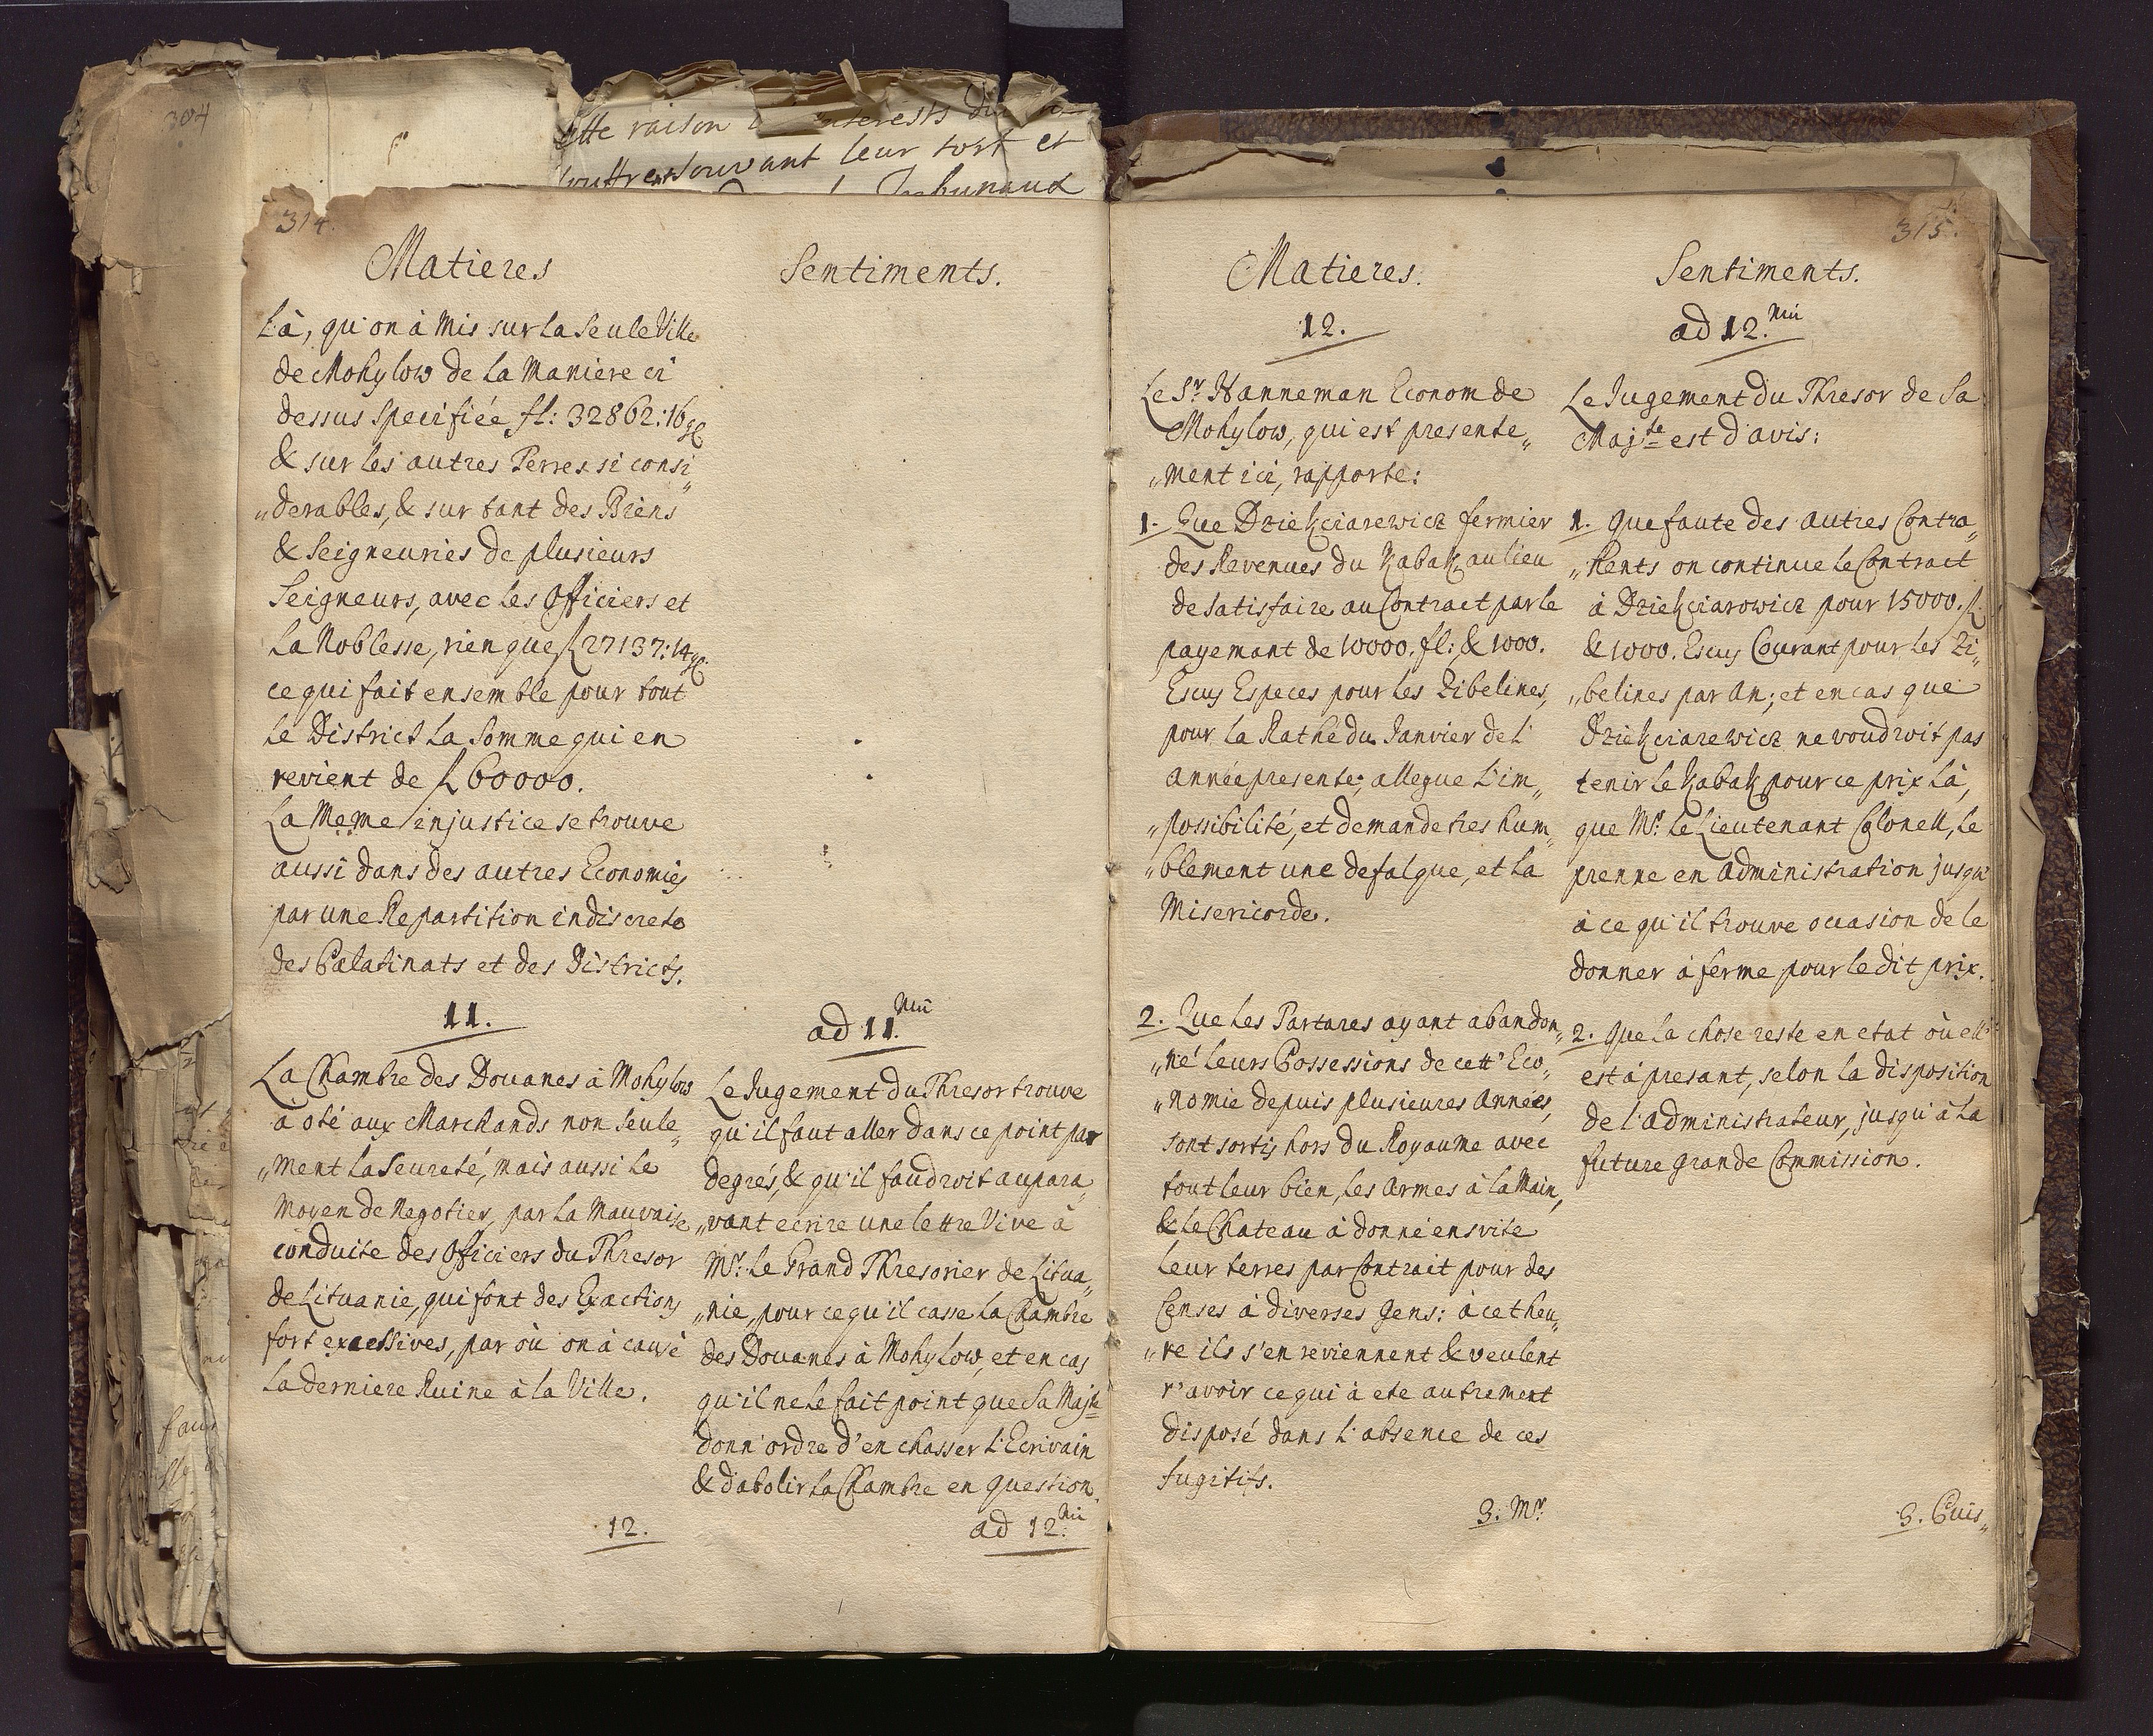 304
cette raison
souffrent souvant leur tort et
314.
Matieres
Là, qu'on à Mis sur la seule Ville
de Mohylow de la Maniere ci
dessus specifiée fl: 32862:16 gl
& sur les autres Terres si consi„
„derables, & sur tant des Biens
& Seigneuries de plusieurs
Seigneurs, avec les Officiers et
la Noblesse, rien que fl 27137:14 gl.
ce qui fait ensemble pour tout
le District la Somme qui en
revient de fl 60000.
La Meme injustice se trouve
aussi dans des autres Economies
par une Repartition indiscrete
des Palatinats et des Districts.
11.
La Chambre des Douanes à Mohylow
à oté aux Marchands non seule„
„ment la Seureté, mais aussi le
Moyen de Negotier, par la Mauvaise
conduite des Officiers du Thresor
de Lituanie, qui font des Exactions
fort excessives, par où on à causé
la derniere Ruine à la Ville.
12.
Sentiments.
ad 11.mũ
Le Jugement du Thresor trouve
qu'il faut aller dans ce point par
degrés, & qu'il faudroit aupara„
„vant ecrire une lettre Vive à
Mr. le Grand Thresorier de Litua„
„nie, pour ce qu'il casse la Chambre
des Douanes à Mohylow, et en cas
qu'il ne le fait point que Sa Majte
donn'ordre d'en chasser l'Ecrivain
& d'abolir la Chambre en question.
ad 12.mũ
315.
Matieres.
12.
Le Sr. Hanneman Econom de
Mohylow, qui est presente„
„ment ici, rapporte:
1. Que Dziekciarewicz fermier
des Revenues du Kabak, au lieu
de satisfaire au Contract par le
payemant de 10000. fl: & 1000.
Escus Especes pour les Zibelines,
pour la Rathe du Janvier de l'
année presente; allegue l'im„
„possibilité, et demande tres hum„
„blement une defalque, et la
Misericorde.
2. Que les Tartares ayant abandon„
„né leurs Possessions de cett'Eco„
„nomie depuis plusieures Années,
sont sortis hors du Royaume avec
tout leur bien, les Armes à la Main,
& le Chateau à donné ensvite
leur terres par Contrait pour des
Censes à diverses Gens: à cet heu„
„re ils s'en reviennent & veulent
r'avoir ce qui à ete autrement
disposé dans l'absence de ces
fugitifs.
3. Mr.
Sentiments.
ad 12.mũ
Le Jugement du Thresor de Sa
Majte est d'avis:
1. Que faute des autres Contra„
„hents on continue le Contract
à Dziekciarowicz pour 15000. fl.
& 1000. Escus Courant pour les Zi„
„belines par An; et en cas que
Dziekciarewicz ne voudroit pas
tenir le Kabak pour ce prix là,
que Mr. le Lieutenant Colonell, le
prenne en Administration jusqu'
à ce qu'il trouve occasion de le
donner à ferme pour le dit prix.
2. Que la chose reste en etat où ell'
est à presant, selon la disposition
de l'Administrateur, jusqu'à la
future grande Commission.
3. Puis„